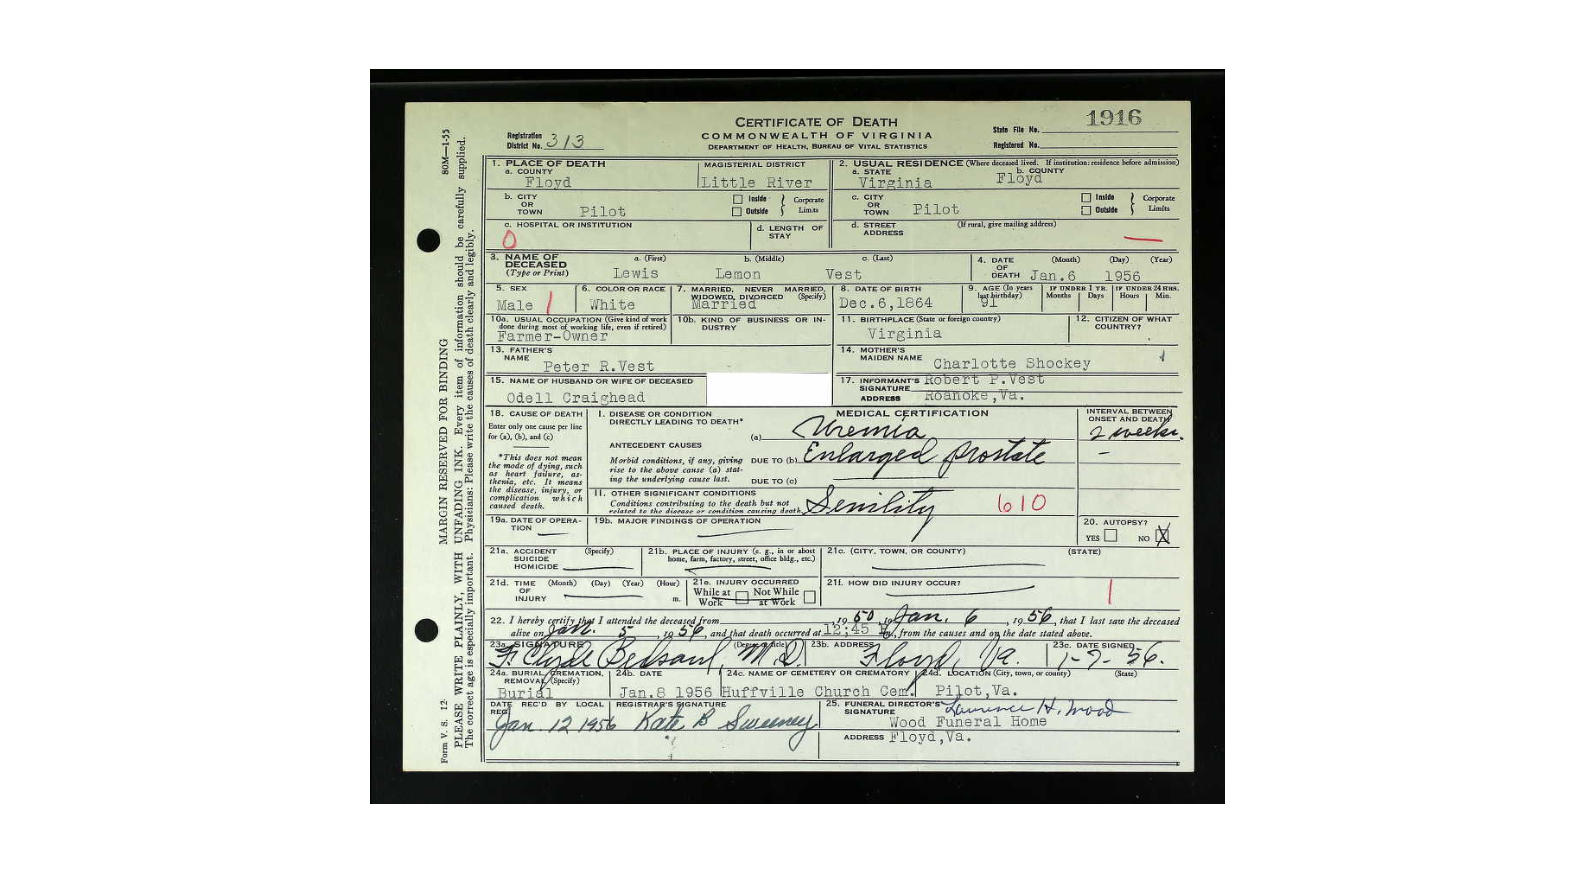 80M—1-55
MARGIN RESERVED FOR BINDING
PLEASE WRITE PLAINLY, WITH UNFADING INK. Every item of information should be carefully supplied.
The correct age is especially important. Physicians: Please write the causes of death clearly and legibly.
Form V. S. 12
CERTIFICATE OF DEATH
COMMONWEALTH OF VIRGINIA
DEPARTMENT OF HEALTH, BUREAU OF VITAL STATISTICS
Registration District No. 313
State File No. 1916
Registered No.
1. PLACE OF DEATH
a. COUNTY Floyd
MAGISTERIAL DISTRICT Little River
2. USUAL RESIDENCE (Where deceased lived. If institution: residence before admission)
a. STATE Virginia
b. COUNTY Floyd
b. CITY OR TOWN Pilot
Inside Outside } Corporate Limits
c. CITY OR TOWN Pilot
Inside Outside } Corporate Limits
c. HOSPITAL OR INSTITUTION
0
d. LENGTH OF STAY
d. STREET ADDRESS (If rural, give mailing address)
3. NAME OF DECEASED (Type or Print)
a. (First) Lewis
b. (Middle) Lemon
c. (Last) Vest
4. DATE OF DEATH (Month) (Day) (Year)
Jan.6 1956
5. SEX Male
6. COLOR OR RACE White
7. MARRIED, NEVER MARRIED, WIDOWED, DIVORCED (Specify) Married
8. DATE OF BIRTH Dec.6,1864
9. AGE (In years last birthday) 91
IF UNDER 1 YR. Months Days
IF UNDER 24 HRS. Hours Min.
10a. USUAL OCCUPATION (Give kind of work done during most of working life, even if retired)
Farmer-Owner
10b. KIND OF BUSINESS OR INDUSTRY
11. BIRTHPLACE (State or foreign country)
Virginia
12. CITIZEN OF WHAT COUNTRY?
13. FATHER'S NAME Peter R.Vest
14. MOTHER'S MAIDEN NAME Charlotte Shockey
15. NAME OF HUSBAND OR WIFE OF DECEASED
Odell Craighead
17. INFORMANT'S SIGNATURE Robert P.Vest
ADDRESS Roanoke,Va.
18. CAUSE OF DEATH
Enter only one cause per line for (a), (b), and (c)
*This does not mean the mode of dying, such as heart failure, asthenia, etc. It means the disease, injury, or complication which caused death.
MEDICAL CERTIFICATION
INTERVAL BETWEEN ONSET AND DEATH
I. DISEASE OR CONDITION DIRECTLY LEADING TO DEATH*
(a) Uremia
2 weeks.
ANTECEDENT CAUSES
Morbid conditions, if any, giving rise to the above cause (a) stating the underlying cause last.
DUE TO (b) Enlarged prostate
DUE TO (c)
II. OTHER SIGNIFICANT CONDITIONS
Conditions contributing to the death but not related to the disease or condition causing death.
Senility
610
19a. DATE OF OPERATION
19b. MAJOR FINDINGS OF OPERATION
20. AUTOPSY?
YES NO X
21a. ACCIDENT SUICIDE HOMICIDE (Specify)
21b. PLACE OF INJURY (e. g., in or about home, farm, factory, street, office bldg., etc.)
21c. (CITY, TOWN, OR COUNTY) (STATE)
21d. TIME OF INJURY (Month) (Day) (Year) (Hour) m.
21e. INJURY OCCURRED
While at Work Not While at Work
21f. HOW DID INJURY OCCUR?
22. I hereby certify that I attended the deceased from , 1950, to Jan. 6, 1956, that I last saw the deceased
alive on Jan. 5, 1956, and that death occurred at 12:45 m., from the causes and on the date stated above.
23a. SIGNATURE (Degree or title)
F. Clyde Bedsaul, M.D.
23b. ADDRESS
Floyd, Va.
23c. DATE SIGNED
1-7-56.
24a. BURIAL, CREMATION, REMOVAL (Specify)
Burial
24b. DATE
Jan.8 1956
24c. NAME OF CEMETERY OR CREMATORY
Huffville Church Cem.
24d. LOCATION (City, town, or county) (State)
Pilot,Va.
DATE REC'D BY LOCAL REG.
Jan. 12 1956
REGISTRAR'S SIGNATURE
Kate B Sweeney
25. FUNERAL DIRECTOR'S SIGNATURE Laurence H. Wood
Wood Funeral Home
ADDRESS Floyd,Va.